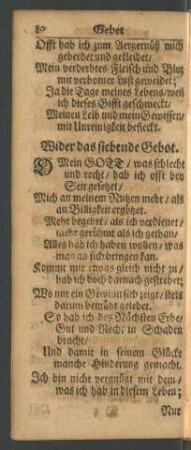 80 Gebet
Offt hab ich zum Aergernüß mich
geberdet und gekleidet/
Mein verderbtes Fleisch und Blut
mit verbotner Lust geweidet;
Ja die Tage meines Lebens/weil
ich dieses Gifft geschmeckt/
Meinen Leib und mein Gewissen/
mit Unreinigkeit befleckt.
Wider das siebende Gebot.
O Mein GOTT/ was schlecht
und recht/ hab ich offt bey
Seit gesetzt/
Mich an meinem Nutzen mehr/ als
an Billigkeit ergötzet.
Mehr begehrt/ als ich verdienet/
mehr gerühmt als ich gethan/
Alles hab ich haben wollen/ was
man an sich bringen kan.
Kommt mir etwas gleich nicht zu/
hab ich doch darnach gestrebet;
Wo nur ein Gewinn sich zeigt/ stets
darum bemüht gelebet.
So hab ich des Nächsten Erbe/
Gut und Recht in Schaden
bracht/
Und damit in seinem Glücke
manche Hinderung gemacht.
Ich bin nicht vergnügt mit dem/
was ich hab in diesem Leben;
Nur